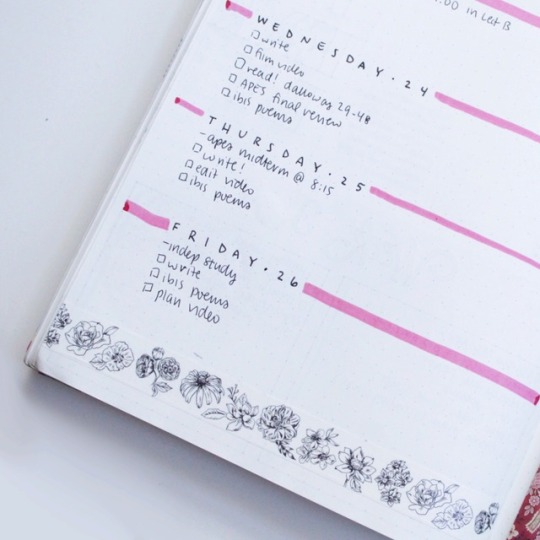 :00 in Lect B
WEDNESDAY · 24
□ write
□ film video
□ read! dalloway 29-48
□ APES final review
□ ibis poems
THURSDAY · 25
- apes midterm @ 8:15
□ write!
□ edit video
□ ibis poems
FRIDAY · 26
- indep study
□ write
□ ibis poems
□ plan video